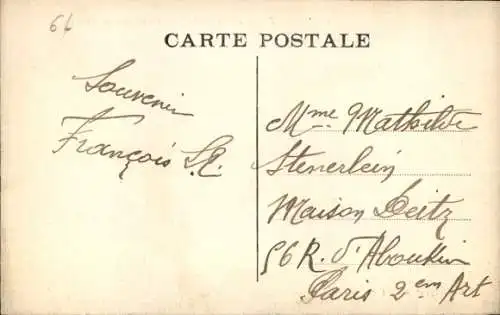 64
CARTE POSTALE
Souvenir
François St.
Mme Mathilde
Stenerlein
Maison Deitz
56 R. d'Aboukir
Paris 2em Art